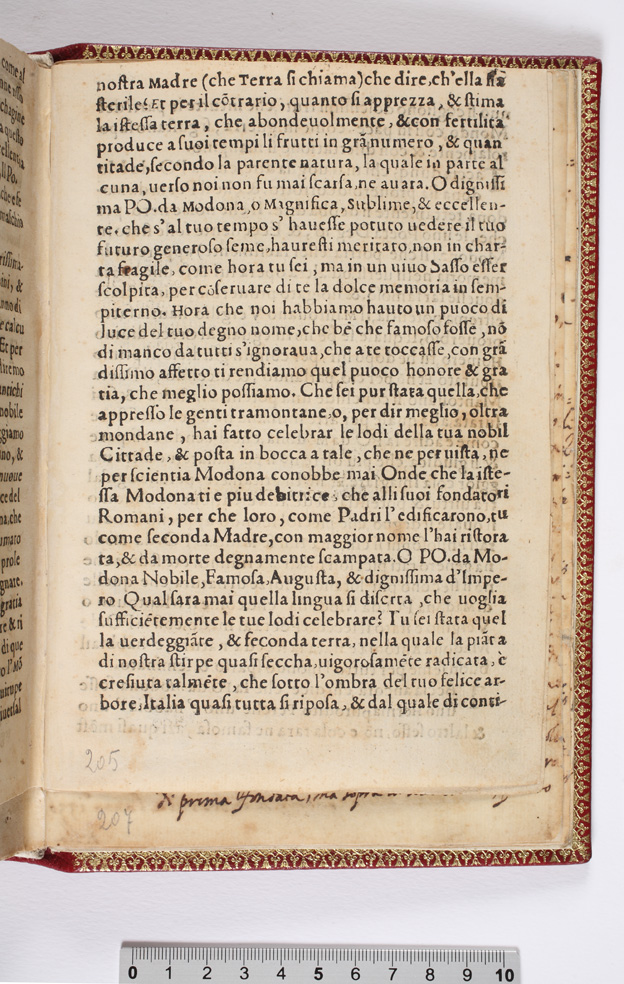 nostra Madre (che Terra si chiama) che dire, ch'ella
sterile? Et per il cõtrario, quanto si apprezza, & stima
la istessa terra, che abondeuolmente, & con fertilità
produce a suoi tempi li frutti in grã numero, & quan
titade, secondo la parente natura, la quale in parte al
cuna, uerso noi non fu mai scarsa, ne auara. O dignissi
ma PO. da Modona, o Magnifica, Sublime, & eccellen-
te. che s' al tuo tempo s' hauesse potuto uedere il tuo
futuro generoso seme, hauresti meritato, non in char-
ta fragile, come hora tu sei, ma in un uiuo Sasso esser
scolpita, per cõseruare di te la dolce memoria in sem-
piterno. Hora che noi habbiamo hauto un puoco di
luce del tuo degno nome, che bẽ che famoso fosse, nõ
di manco da tutti s'ignoraua, che a te toccasse, con grã
dissimo affetto ti rendiamo quel puoco honore & gra
tia, che meglio possiamo. Che sei pur stata quella, che
appresso le genti tramontane, o, per dir meglio, oltra
mondane, hai fatto celebrar le lodi della tua nobil
Cittade, & posta in bocca a tale, che ne per uista, ne
per scientia Modona conobbe mai. Onde che la iste-
ssa Modona ti e piu debitrice, che alli suoi fondatori
Romani, per che loro, come Padri l'edificarono, tu
come seconda Madre, con maggior nome l'hai ristora
ta, & da morte degnamente scampata. O PO. da Mo-
dona Nobile, Famosa, Augusta, & dignissima d'Impe-
ro Qual sara mai quella lingua si discrta, che uoglia
sufficiẽtemente le tue lodi celebrare? Tu sei stata quel
la uerdeggiãte, & feconda terra, nella quale la piãta
di nostra stirpe quasi seccha, uigorosamẽte radicata, è
cresiuta talmẽte, che sotto l'ombra del tuo felice ar-
bore, Italia quasi tutta si riposa, & dal quale di conti-
205
di prima
207
0 1 2 3 4 5 6 7 8 9 10